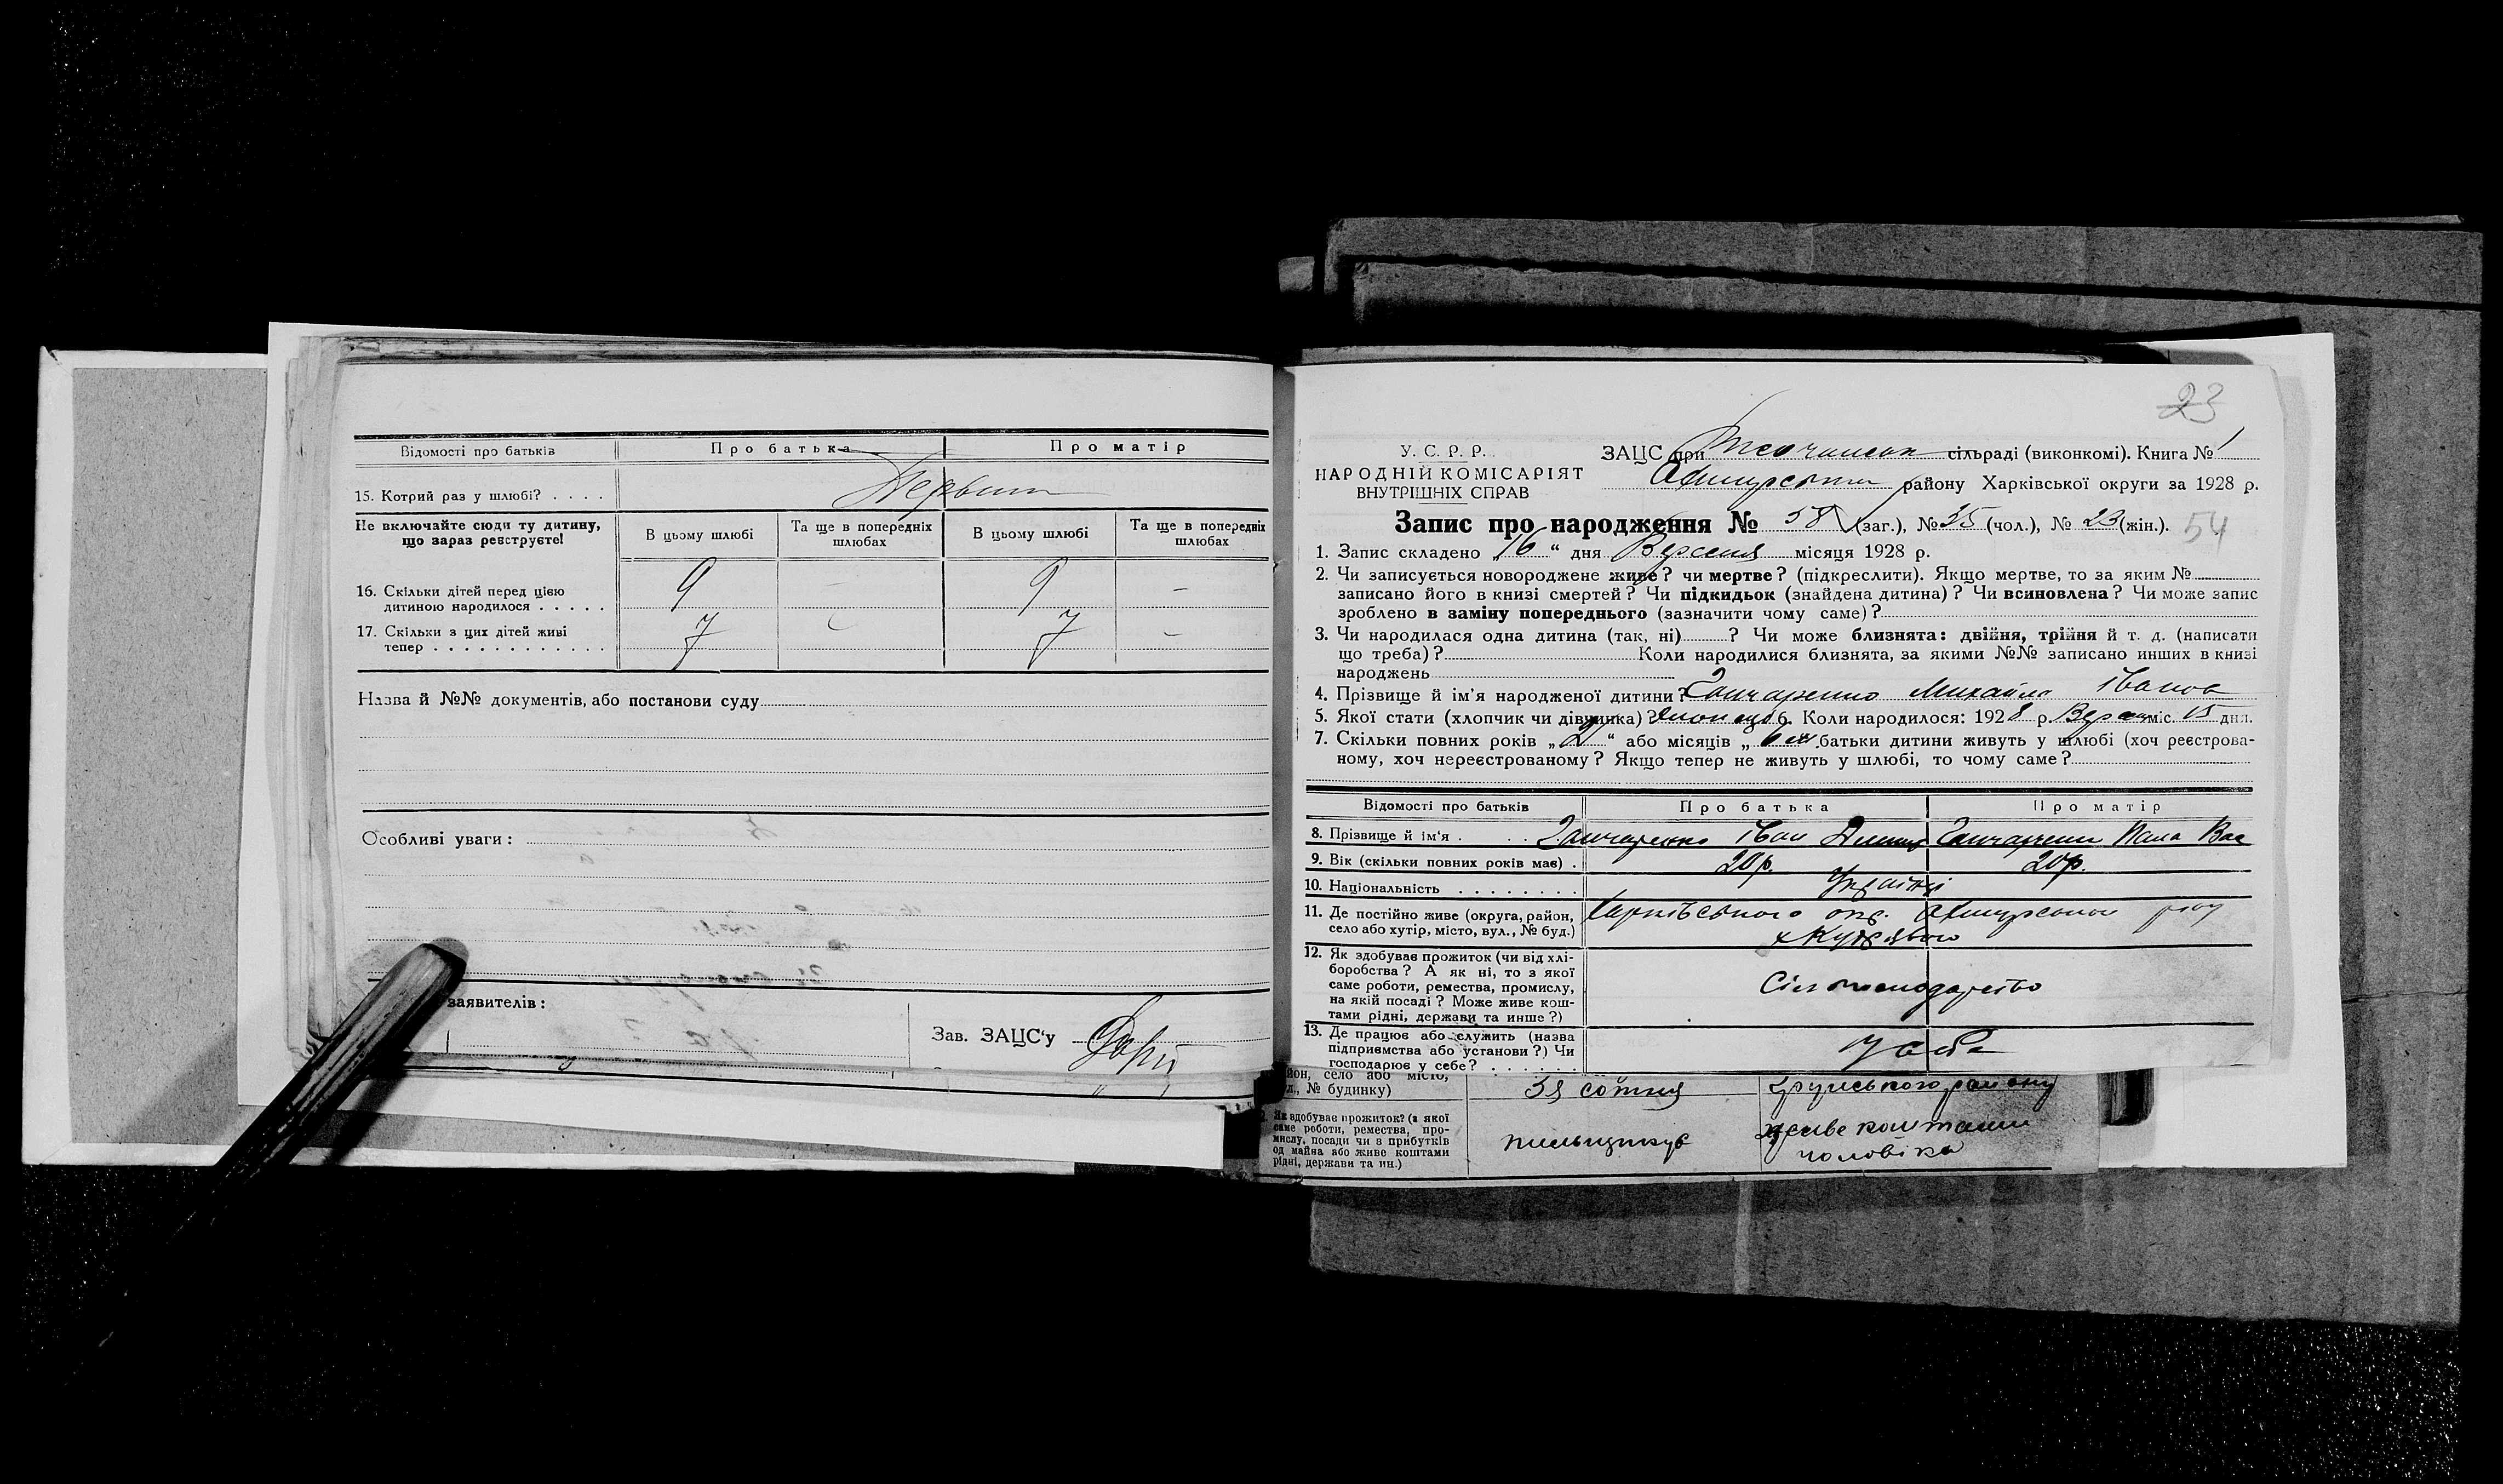 Відомості про батьків
Про батька
Про матір
15. Котрий раз у шлюбі? . . . .
Не включайте сюди ту дитину, що зараз реєструєте!
В цьому шлюбі
Та ще в попередніх шлюбах
В цьому шлюбі
Та ще в попередніх шлюбах
16. Скільки дітей перед цією
дитиною народилося . . . . .
9
–
9
–
17. Скільки з цих дітей живі
тепер . . . . . . . . . . . .
7
–
7
–
Назва й №№ документів, або постанови суду
Особливі уваги:
заявителів:
Зав. ЗАЦС'у
23
У. С. Р. Р.
НАРОДНІЙ КОМІСАРІЯТ
ВНУТРІШНІХ СПРАВ
ЗАЦС при сільраді (виконкомі). Книга № 1
району Харківської округи за 1928 р.
Запис про народження № 58 (заг.), № 35 (чол.), № 23 (жін.). 54
1. Запис складено „16“ дня Вересня місяця 1928 р.
2. Чи записується новороджене живе? чи мертве? (підкреслити). Якщо мертве, то за яким №
записано його в книзі смертей? Чи підкидьок (знайдена дитина)? Чи всиновлена? Чи може запис
зроблено в заміну попереднього (зазначити чому саме)?
3. Чи народилася одна дитина (так, ні) ? Чи може близнята: двійня, трійня й т. д. (написати
що треба)? Коли народилися близнята, за якими №№ записано инших в книзі
народжень
4. Прізвище й ім'я народженої дитини? Гончаренко Михайло Іванов
5. Якої стати (хлопчик чи дівчинка)? 6. Коли народилося: 1928 р. міс. 15 дня.
7. Скільки повних років „2“ або місяців „6 батьки дитини живуть у шлюбі (хоч реєстрова-
ному, хоч нереєстрованому? Якщо тепер не живуть у шлюбі, то чому саме?
Відомості про батьків
Про батька
Про матір
8. Прізвище й ім'я . . . Гончаренко Іван
9. Вік (скільки повних років має) . 20р. 20р.
10. Національність . . . . . . . . Українці
11. Де постійно живе (округа, район,
село або хутір, місто, вул., № буд.)
Харківського окр.
12. Як здобуває прожиток (чи від хлі-
боробства? А як ні, то з якої
саме роботи, ремества, промислу,
на якій посаді? Може живе кош-
тами рідні, держави та инше?)
13. Де працює або служить (назва
підприємства або установи?) Чи
господарює у себе? . . . . . .
у себе
йон, село або місто,
л., № будинку)
3я сотня
району
Як здобуває прожиток? (з якої
саме роботи, ремества, про-
мислу, посади чи з прибутків
од майна або живе коштами
рідні, держави та ин.)
живе коштами
чоловіка